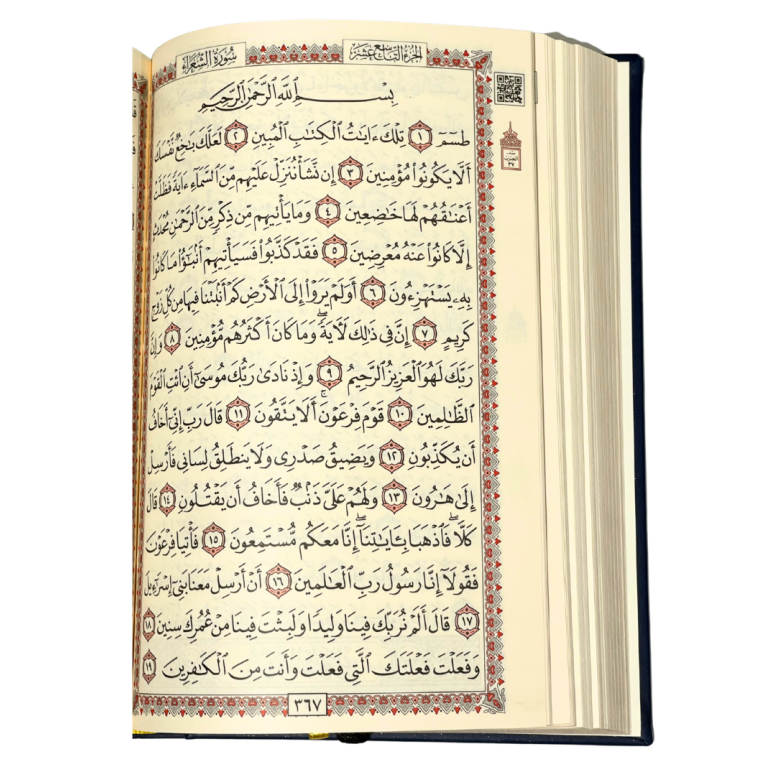 سُورَةُ الشُّعَرَاءِ
الجُزْءُ التَّاسِعَ عَشَرَ
بِسْمِ ٱللَّهِ ٱلرَّحْمَٰنِ ٱلرَّحِيمِ
طسٓمٓ ١ تِلْكَ ءَايَٰتُ ٱلْكِتَٰبِ ٱلْمُبِينِ ٢ لَعَلَّكَ بَٰخِعٌ نَّفْسَكَ
أَلَّا يَكُونُوا۟ مُؤْمِنِينَ ٣ إِن نَّشَأْ نُنَزِّلْ عَلَيْهِم مِّنَ ٱلسَّمَآءِ ءَايَةً فَظَلَّتْ
أَعْنَٰقُهُمْ لَهَا خَٰضِعِينَ ٤ وَمَا يَأْتِيهِم مِّن ذِكْرٍ مِّنَ ٱلرَّحْمَٰنِ مُحْدَثٍ
إِلَّا كَانُوا۟ عَنْهُ مُعْرِضِينَ ٥ فَقَدْ كَذَّبُوا۟ فَسَيَأْتِيهِمْ أَنۢبَٰٓؤُا۟ مَا كَانُوا۟
بِهِۦ يَسْتَهْزِءُونَ ٦ أَوَلَمْ يَرَوْا۟ إِلَى ٱلْأَرْضِ كَمْ أَنۢبَتْنَا فِيهَا مِن كُلِّ زَوْجٍ
كَرِيمٍ ٧ إِنَّ فِى ذَٰلِكَ لَءَايَةً ۖ وَمَا كَانَ أَكْثَرُهُم مُّؤْمِنِينَ ٨ وَإِنَّ
رَبَّكَ لَهُوَ ٱلْعَزِيزُ ٱلرَّحِيمُ ٩ وَإِذْ نَادَىٰ رَبُّكَ مُوسَىٰٓ أَنِ ٱئْتِ ٱلْقَوْمَ
ٱلظَّٰلِمِينَ ١٠ قَوْمَ فِرْعَوْنَ ۚ أَلَا يَتَّقُونَ ١١ قَالَ رَبِّ إِنِّىٓ أَخَافُ
أَن يُكَذِّبُونِ ١٢ وَيَضِيقُ صَدْرِى وَلَا يَنطَلِقُ لِسَانِى فَأَرْسِلْ
إِلَىٰ هَٰرُونَ ١٣ وَلَهُمْ عَلَىَّ ذَنۢبٌ فَأَخَافُ أَن يَقْتُلُونِ ١٤ قَالَ
كَلَّا ۖ فَٱذْهَبَا بِـَٔايَٰتِنَآ ۖ إِنَّا مَعَكُم مُّسْتَمِعُونَ ١٥ فَأْتِيَا فِرْعَوْنَ
فَقُولَآ إِنَّا رَسُولُ رَبِّ ٱلْعَٰلَمِينَ ١٦ أَنْ أَرْسِلْ مَعَنَا بَنِىٓ إِسْرَٰٓءِيلَ
١٧ قَالَ أَلَمْ نُرَبِّكَ فِينَا وَلِيدًا وَلَبِثْتَ فِينَا مِنْ عُمُرِكَ سِنِينَ ١٨
وَفَعَلْتَ فَعْلَتَكَ ٱلَّتِى فَعَلْتَ وَأَنتَ مِنَ ٱلْكَٰفِرِينَ ١٩
٣٦٧
الحزب
٣٧